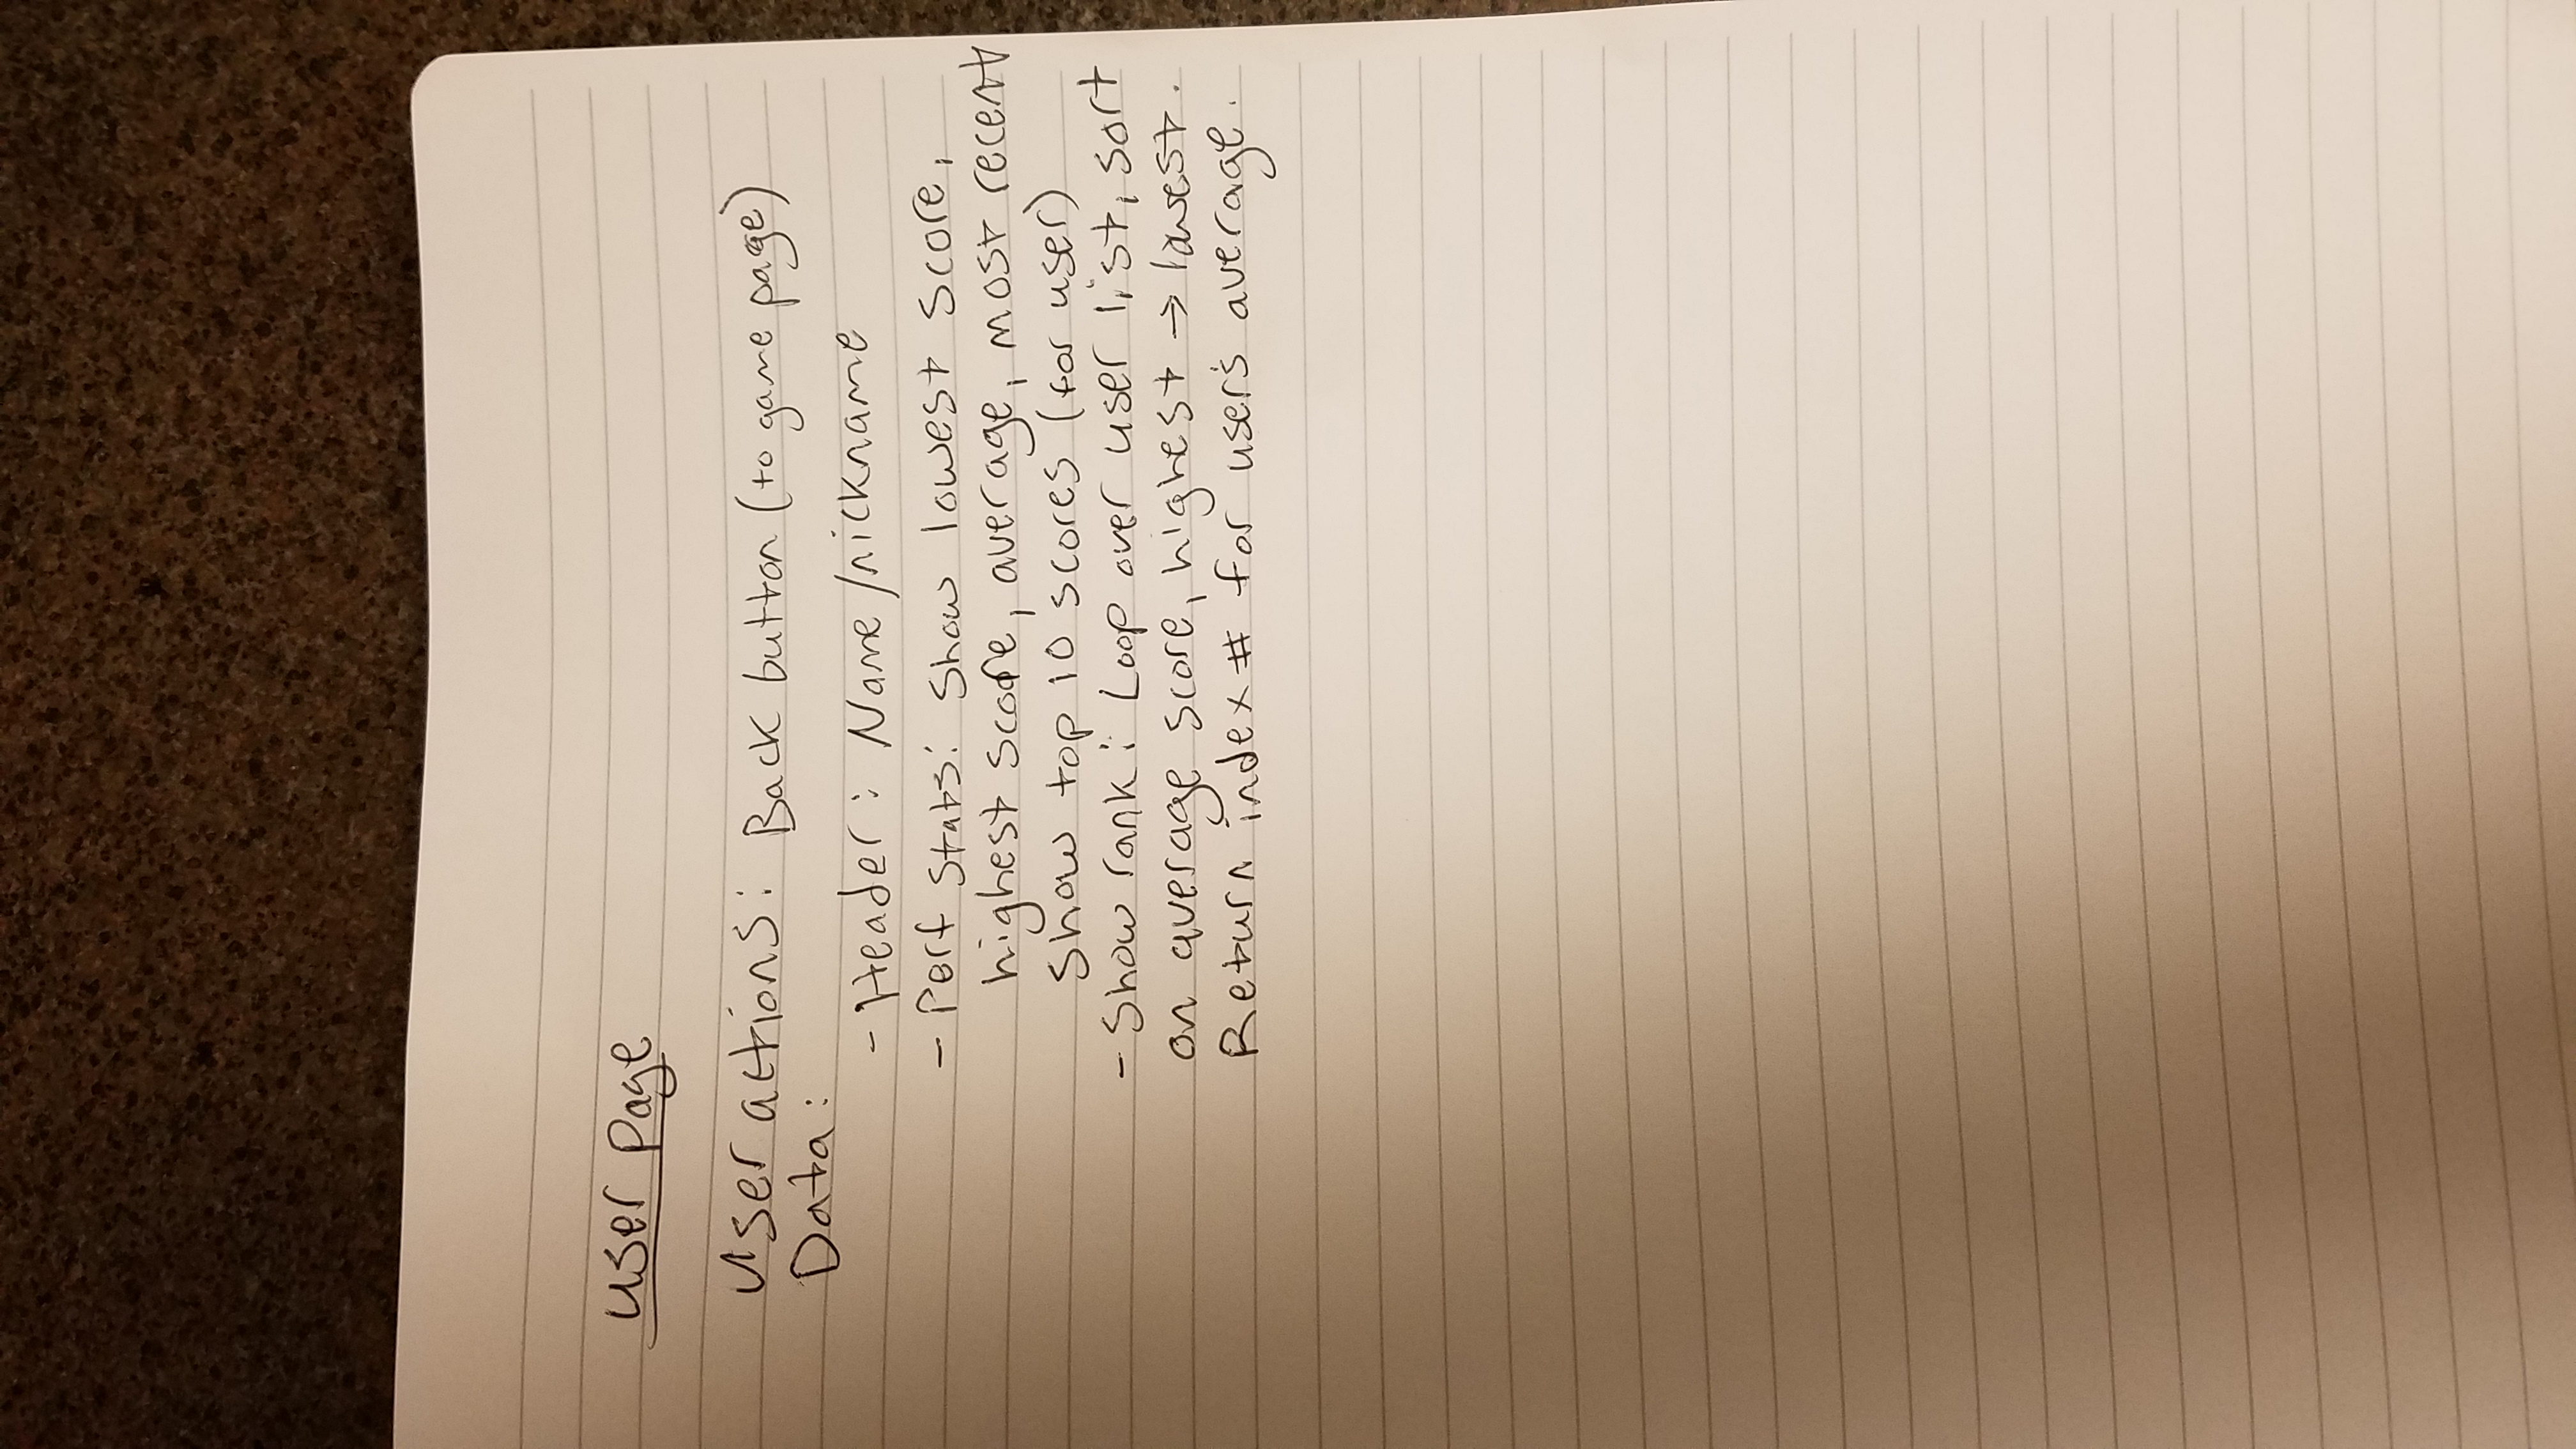 User Page
User actions: Back button (to game page)
Data:
- Header: Name/nickname
- Perf Stats: Show lowest score,
highest score, average, most recent
Show top 10 scores (for user)
- Show rank: Loop over user list, sort
on average score, highest → lowest.
Return index # for user's average.